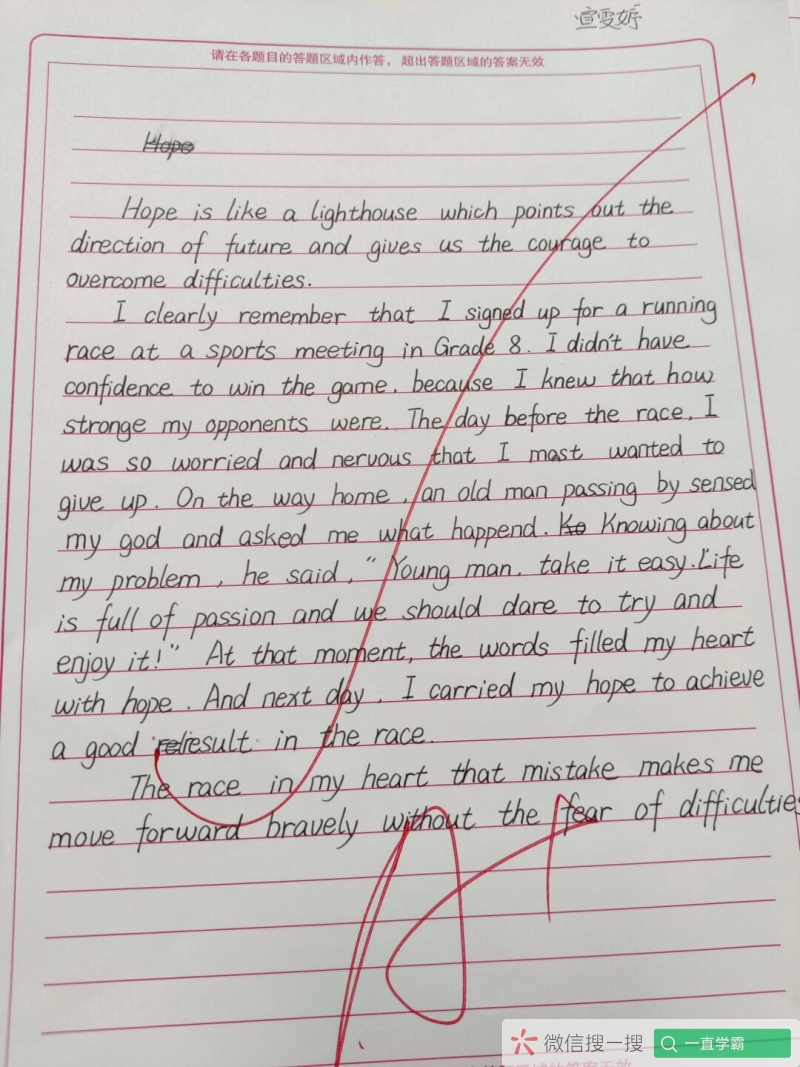 宣雯妤
请在各题目的答题区域内作答，超出答题区域的答案无效
Hope
Hope is like a lighthouse which points out the
direction of future and gives us the courage to
overcome difficulties.
I clearly remember that I signed up for a running
race at a sports meeting in Grade 8. I didn't have
confidence to win the game, because I knew that how
stronge my opponents were. The day before the race, I
was so worried and nervous that I mast wanted to
give up. On the way home, an old man passing by sensed
my god and asked me what happend. Ko Knowing about
my problem, he said, "Young man, take it easy. Life
is full of passion and we should dare to try and
enjoy it!" At that moment, the words filled my heart
with hope. And next day, I carried my hope to achieve
a good result in the race.
The race in my heart that mistake makes me
move forward bravely without the fear of difficulties
A+
微信搜一搜
一直学霸